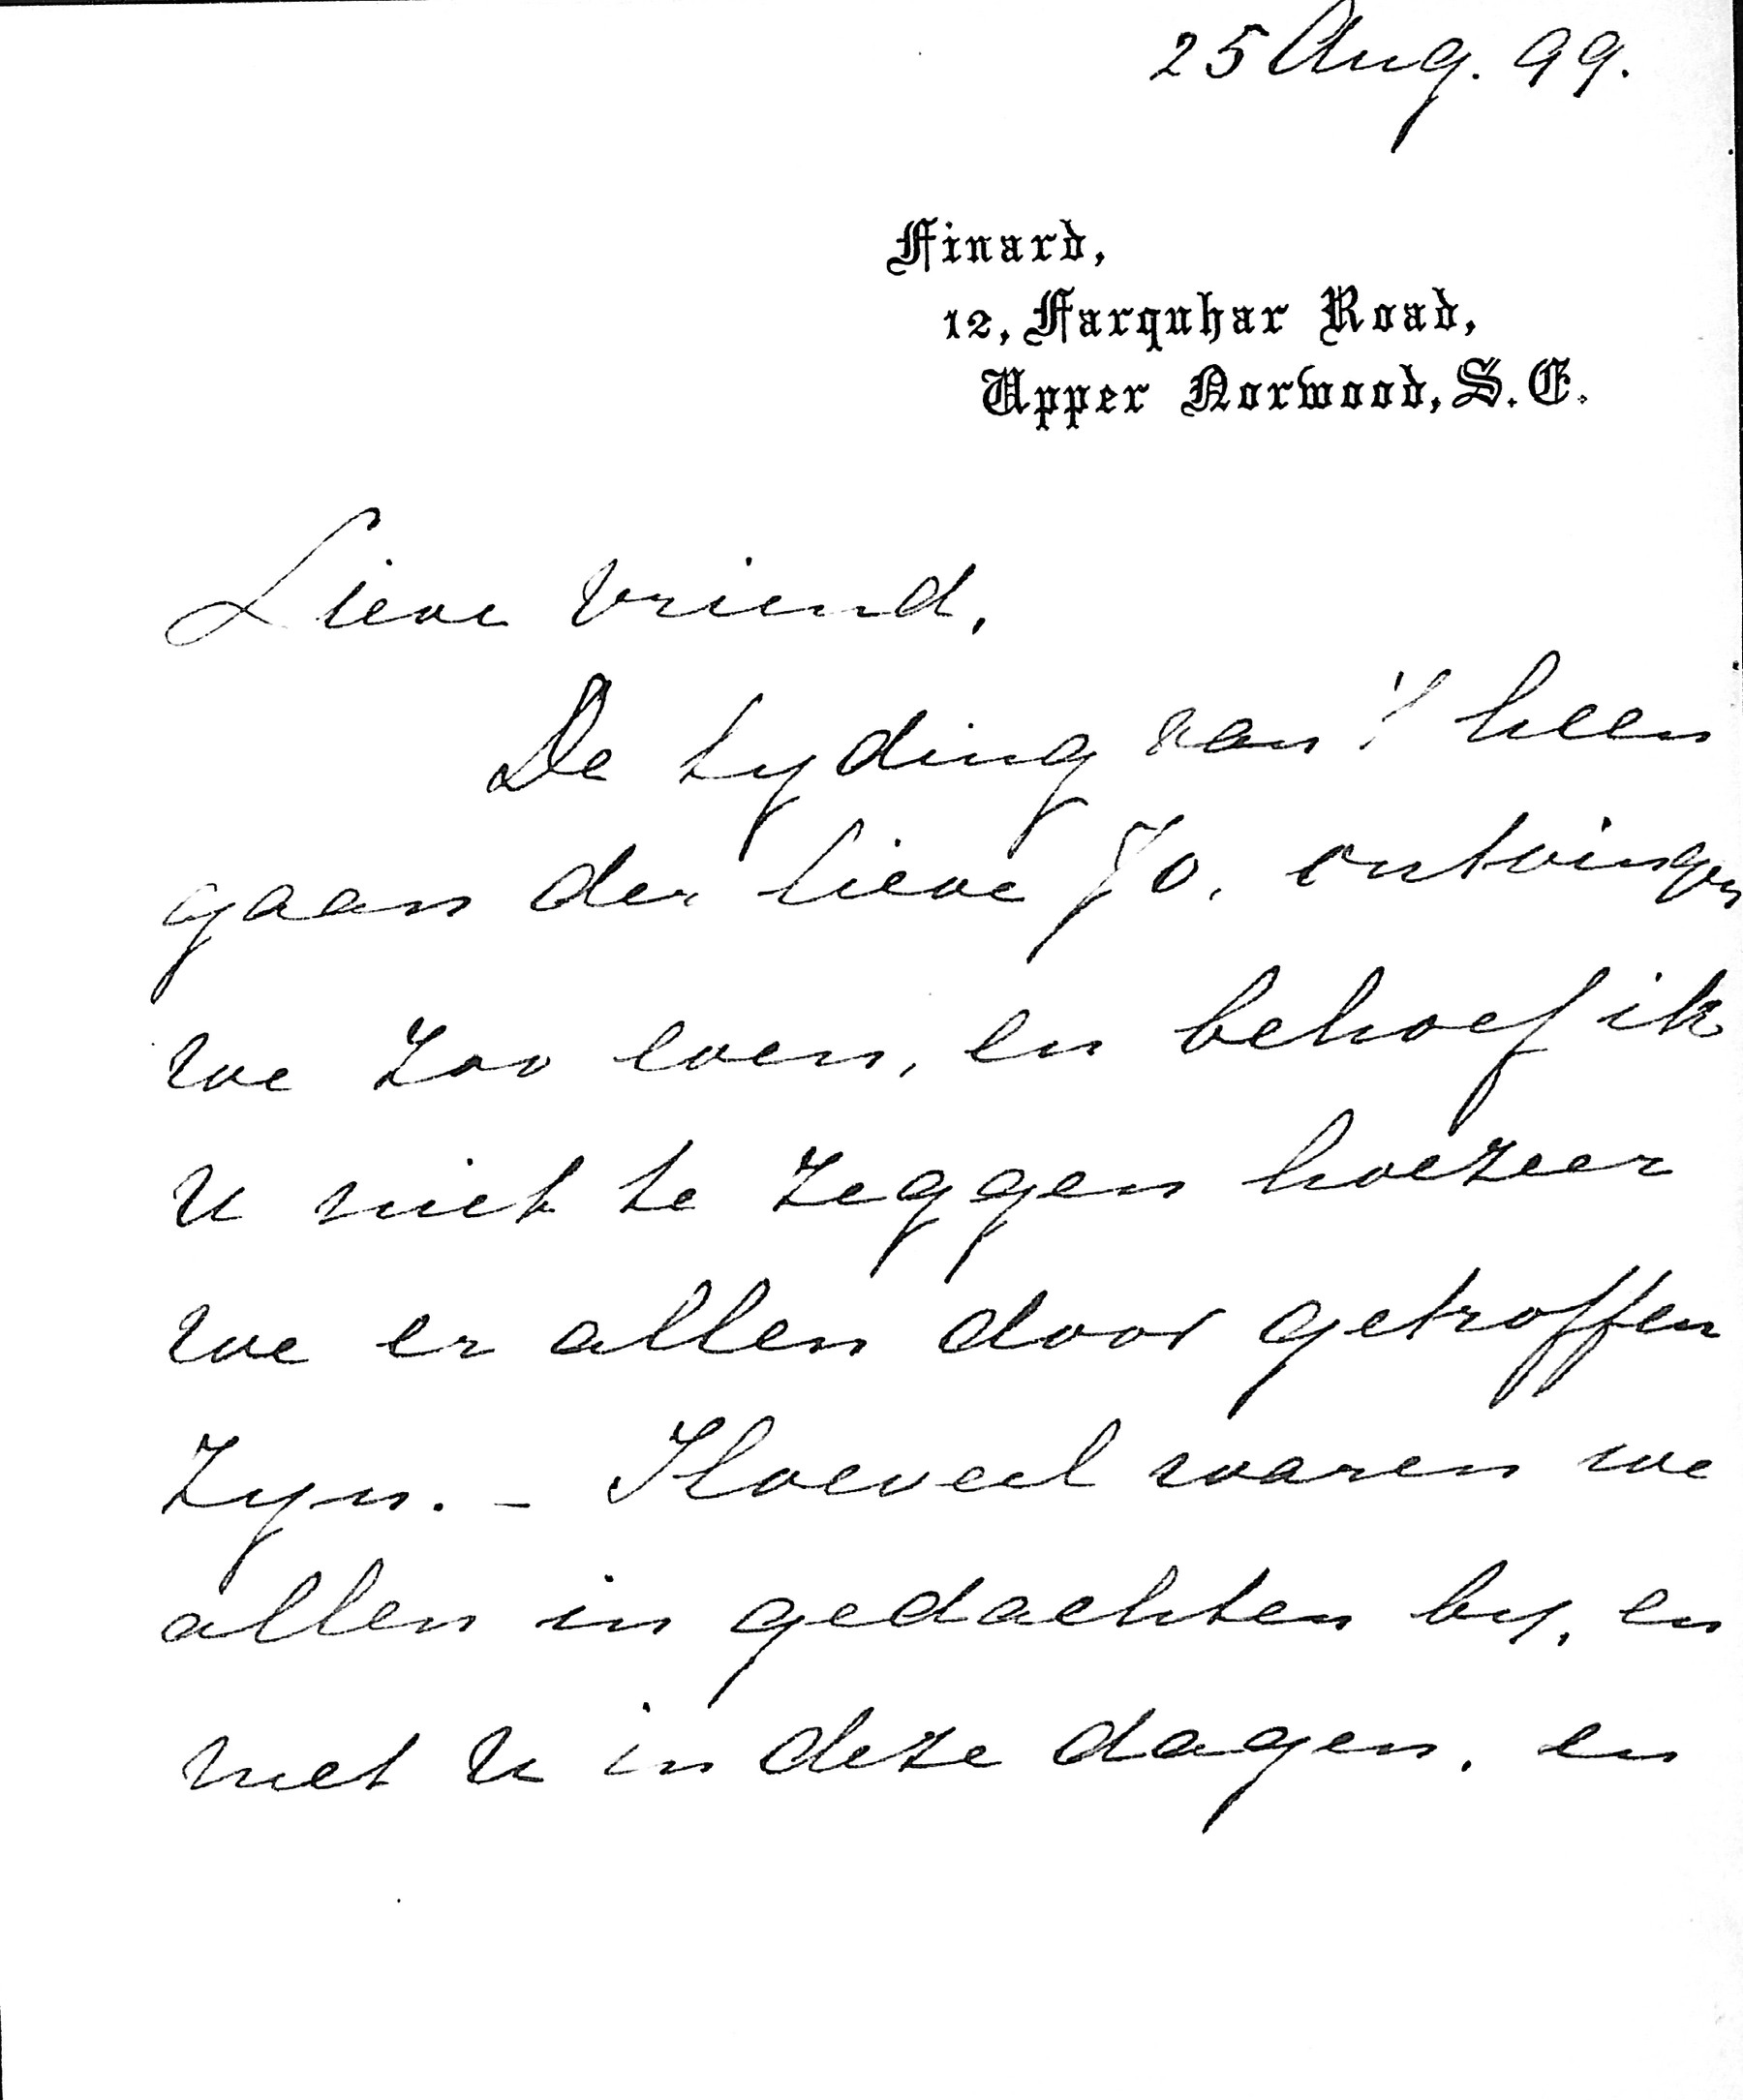 25 Aug. 99.
Finard,
12, Farquhar Road,
Upper Norwood, S.E.
Lieve vriend,
De tyding van 't heen
gaan der lieve Jo, ontvingen
we zoo even, en behoef ik
u niet te zeggen hoezeer
we er allen door getroffen
zyn. - Hoeveel waren we
allen in gedachten by, en
met u in deze dagen, en